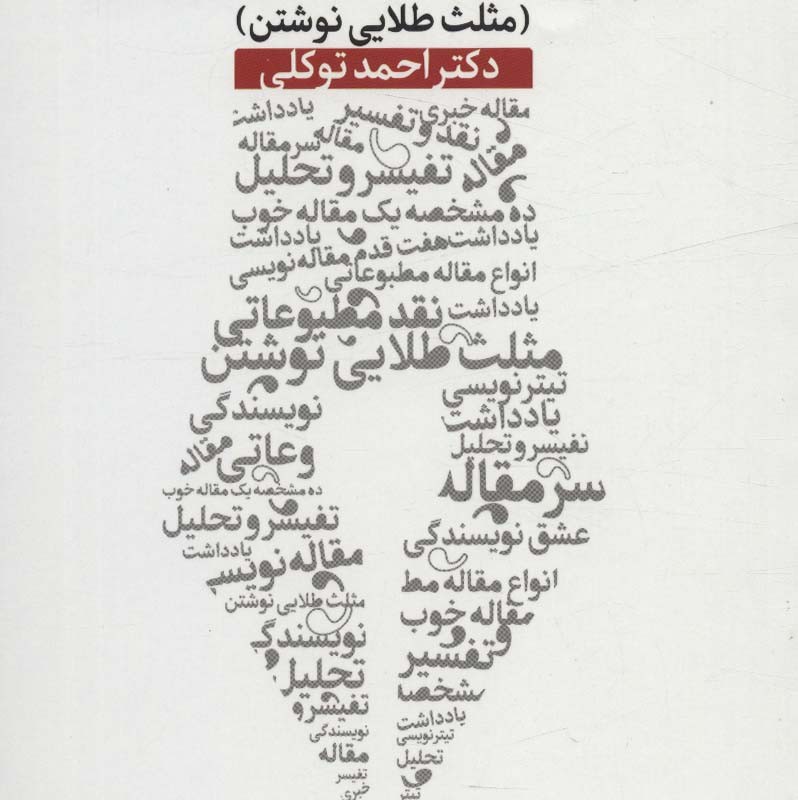 (مثلث طلایی نوشتن)
دکتر احمد توکلی
مقاله خبری یادداشت
نقد و تفسیر
مقاله مقاله سرمقاله
تفیسر و تحلیل
ده مشخصه یک مقاله خوب
یادداشت هفت قدم یادداشت
مقاله نویسی
انواع مقاله مطبوعاتی
یادداشت نقد مطبوعاتی
مثلث طلایی نوشتن
تیترنویسی
یادداشت نویسندگی
تفیسر و تحلیل وعاتی مقاله
سرمقاله ده مشخصه یک مقاله خوب
تفیسر و تحلیل
عشق نویسندگی یادداشت
مقاله نویسی
انواع مقاله مط
مثلث طلایی نوشتن
مقاله خوب نویسندگی
و تفسیر تحلیل
شخصه تفیسر و
یادداشت نویسندگی
تیترنویسی
تحلیل مقاله
تفیسر
تیتر خبری